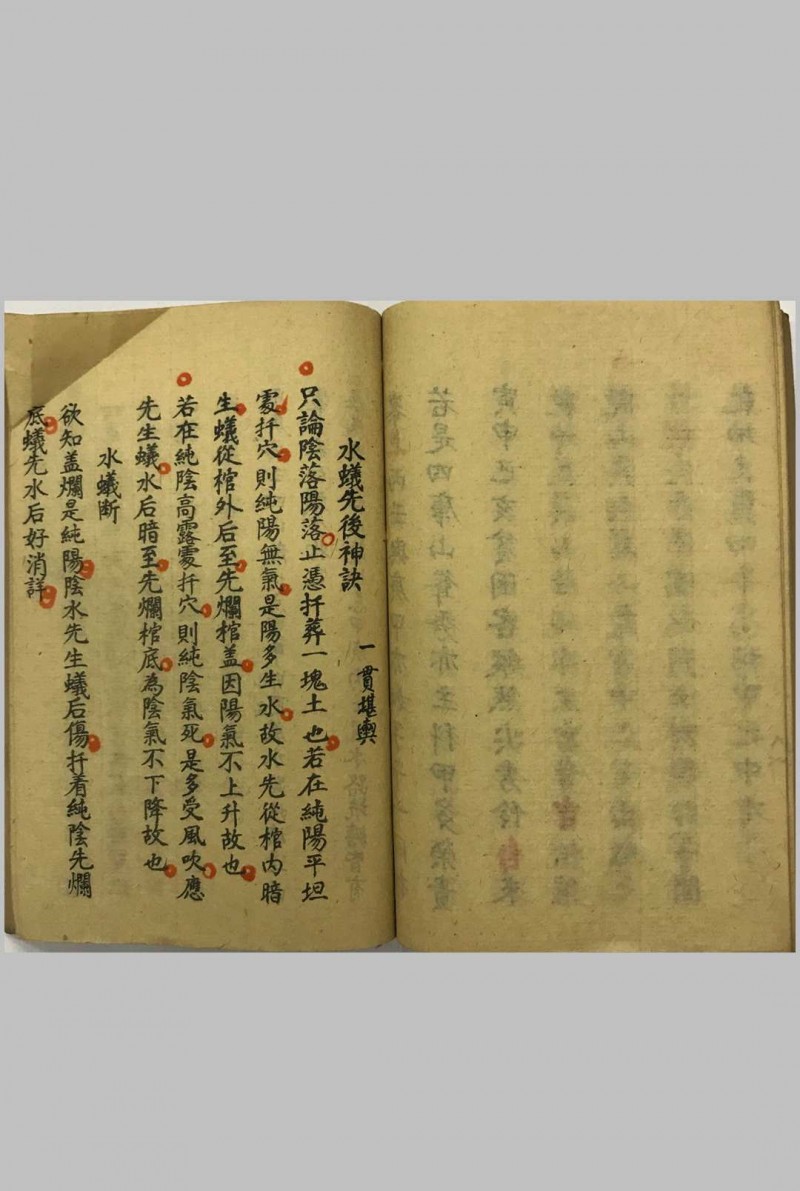 水蟻先後神訣
一貫堪輿
只論陰落陽落止憑扦葬一塊土也若在純陽平坦
處扦穴則純陽無氣是陽多生水故水先從棺內暗
生蟻從棺外后至先爛棺盖因陽氣不上升故也
若在純陰高露處扦穴則純陰氣死是多受風吹應
先生蟻水后暗至先爛棺底為陰氣不下降故也
水蟻断
欲知盖爛是純陽陰水先生蟻后傷扦着純陰先爛
底蟻先水后好消詳